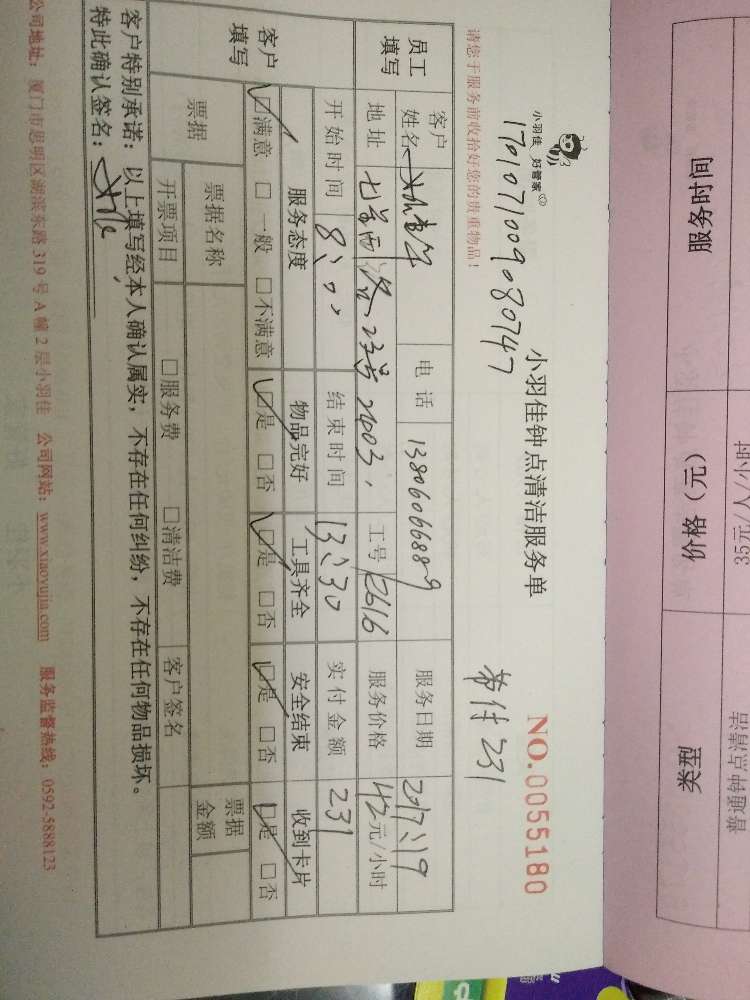 小羽佳 好管家
小羽佳钟点清洁服务单
NO.0055180
1701071009080747
带付231
请您于服务前收拾好您的贵重物品！
员工填写
客户姓名
电话 13806066889
服务日期
地址
23号2403
工号 12616
服务价格 42元/小时
开始时间 8:00
结束时间 13:30
实付金额 231
客户填写
服务态度 物品完好 工具齐全 安全结束 收到卡片
☑满意 □一般 □不满意 ☑是 □否 ☑是 □否 ☑是 □否 ☑是 □否
票据
票据名称
票据金额
开票项目 □服务费 □清洁费 客户签名
客户特别承诺：以上填写经本人确认属实，不存在任何纠纷，不存在任何物品损坏。
特此确认签名：
公司地址：厦门市思明区湖滨东路319号A幢2层小羽佳 公司网站：www.xiaoyujia.com 服务监督热线：0592-5888123
服务时间 价格（元） 类型
35元/人/小时 普通钟点清洁